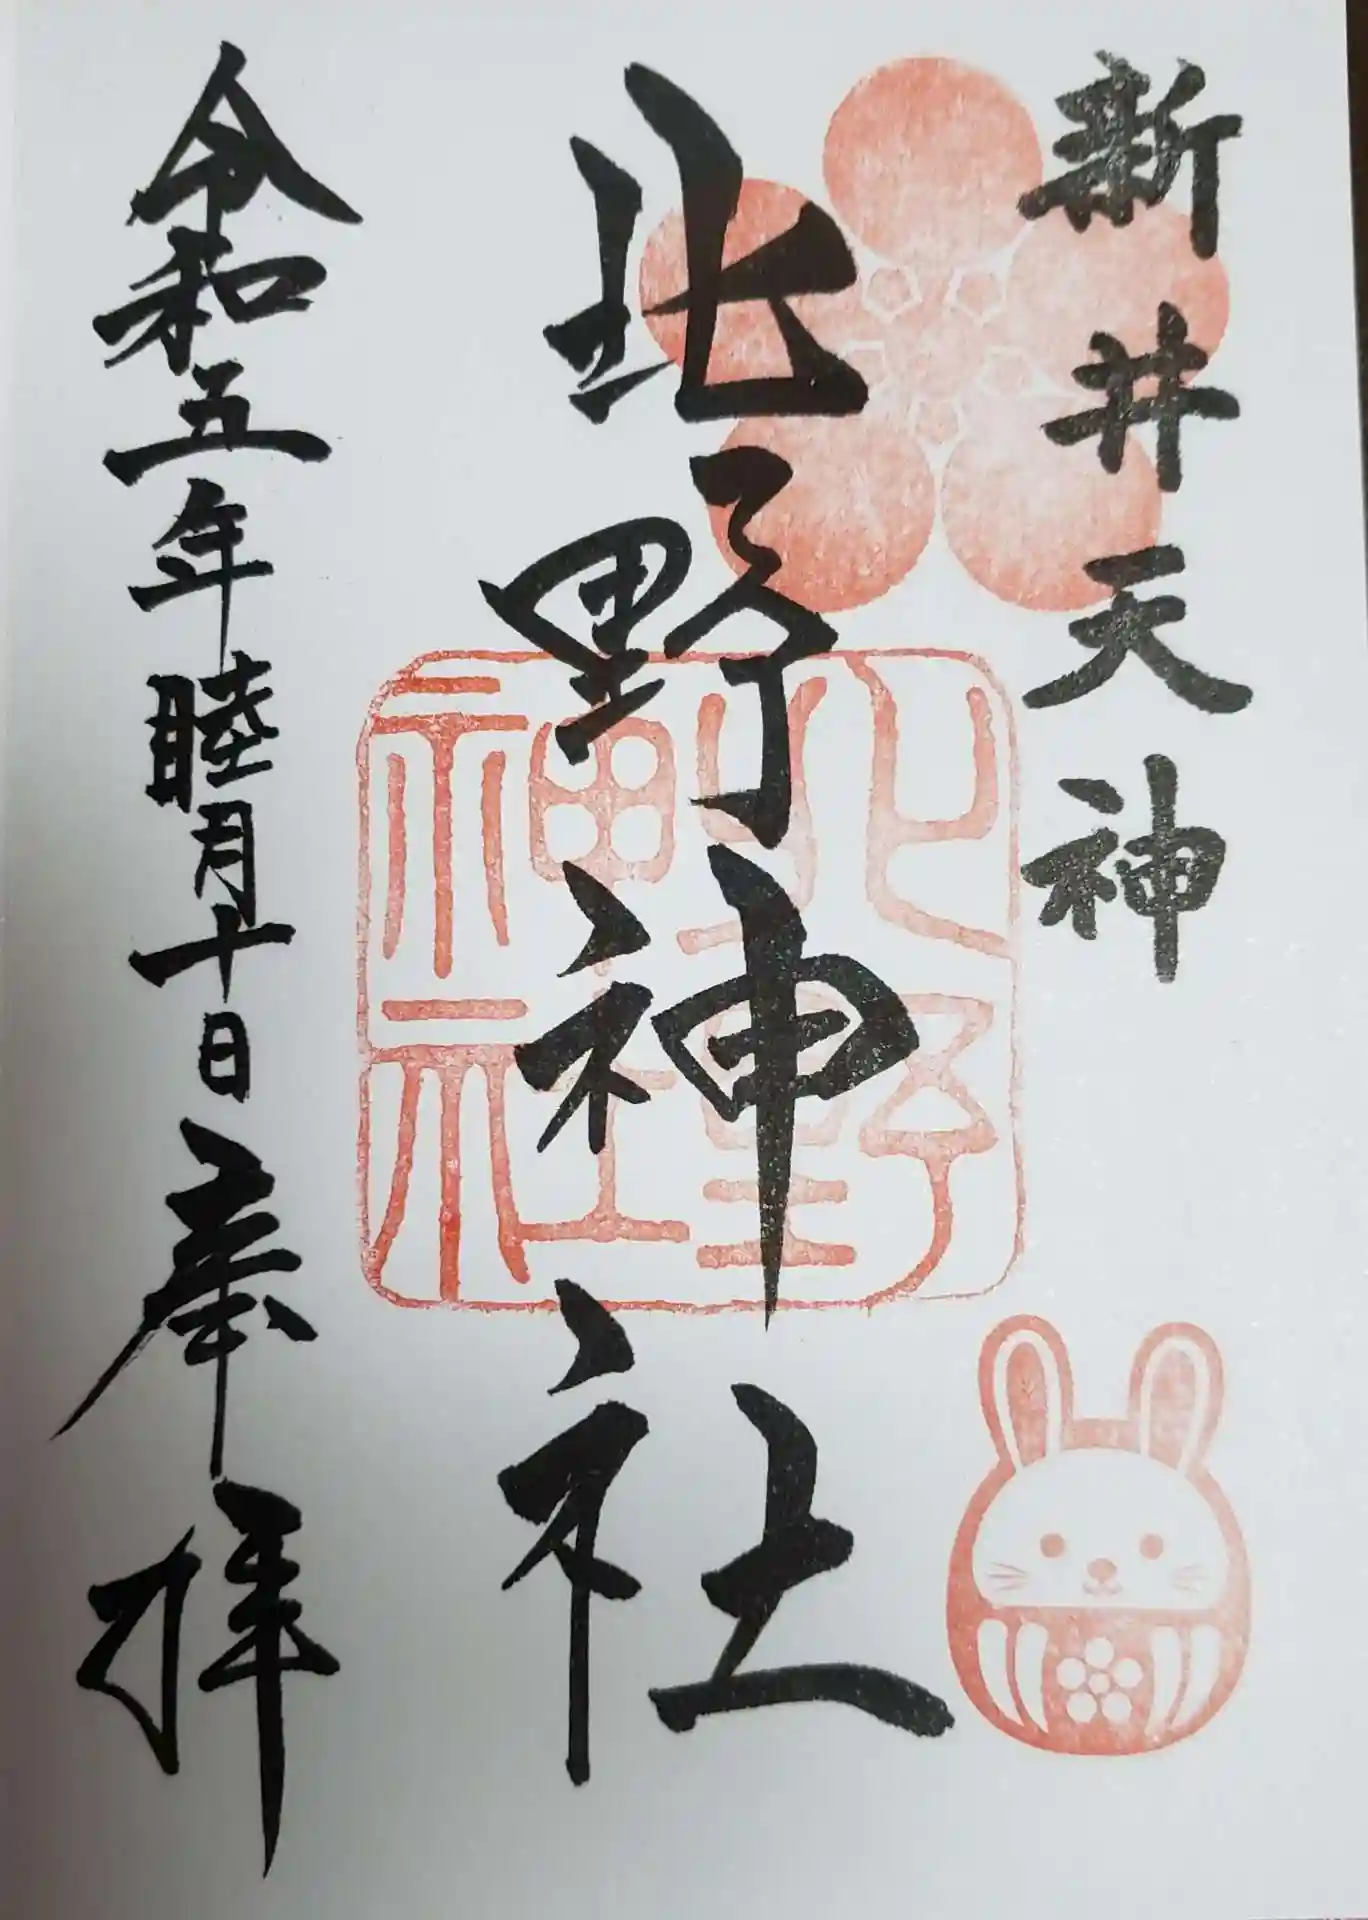 新井天神
北野神社
北野
神社
令和五年睦月十日奉拝